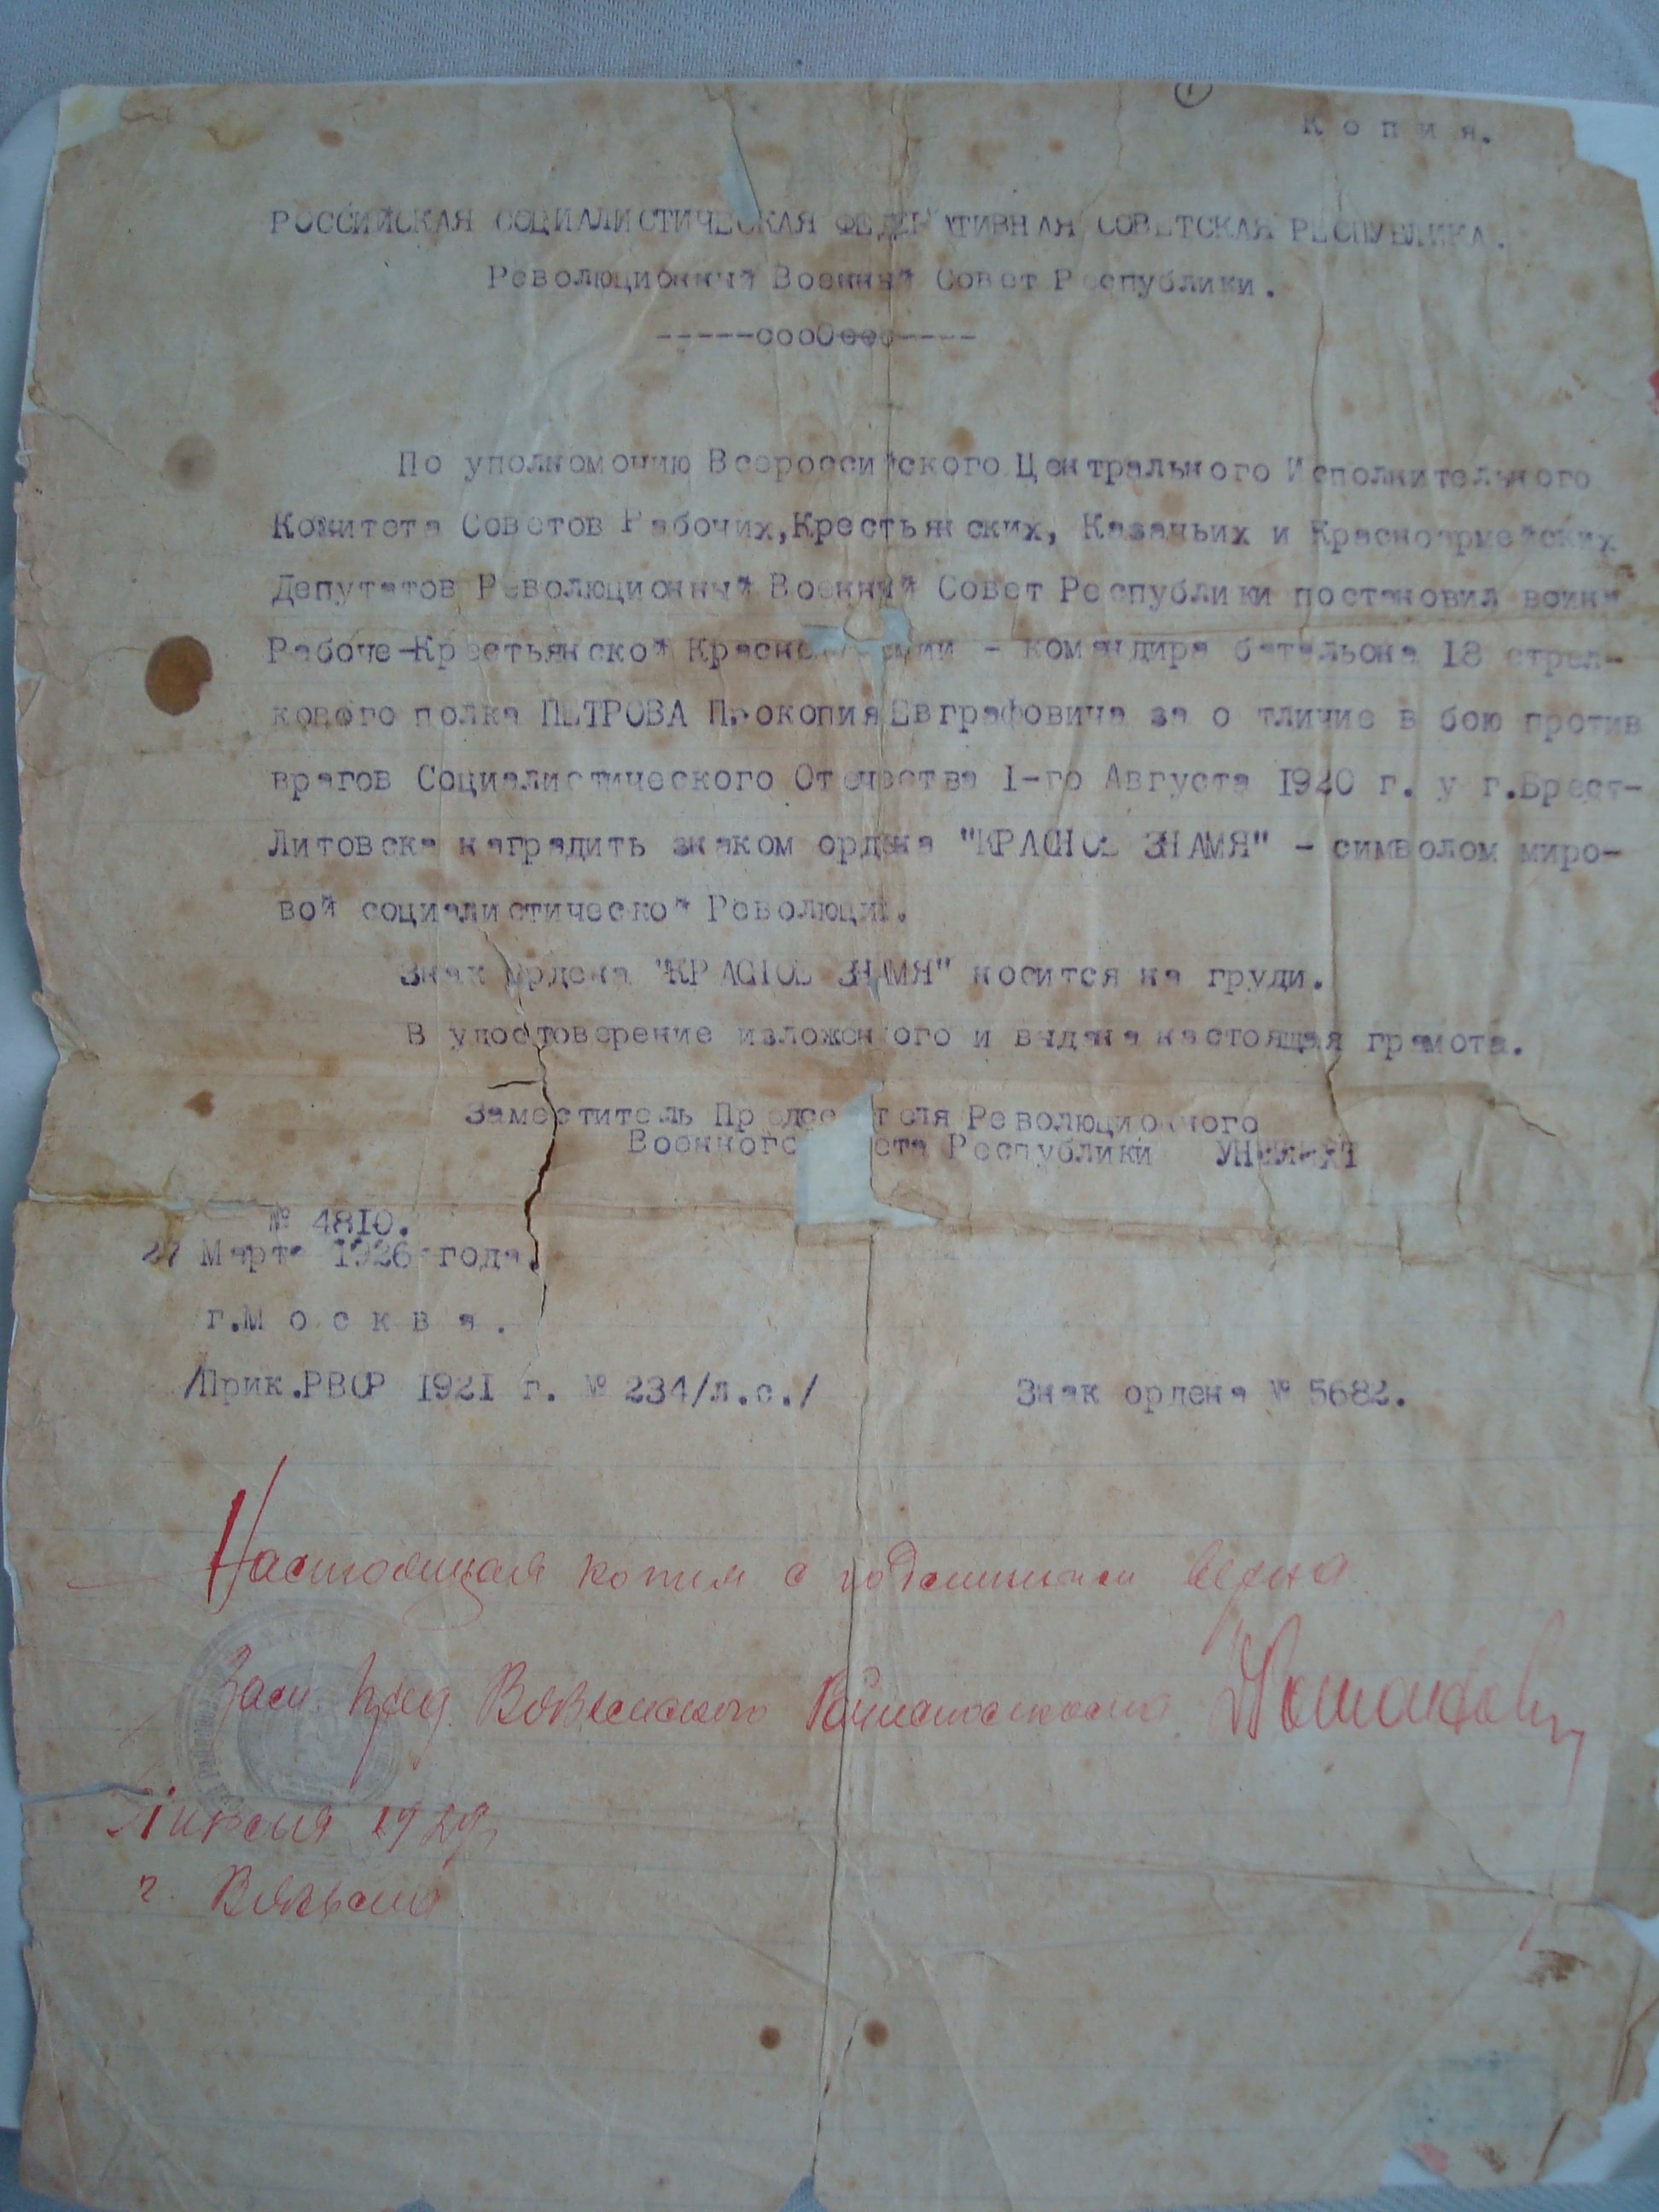 К о п и я.
РОССИЙСКАЯ СОЦИАЛИСТИЧЕСКАЯ ФЕДЕРАТИВНАЯ СОВЕТСКАЯ РЕСПУБЛИКА.
Революционный Военный Совет Республики.
-----оооОооо----
По уполномочию Всероссийского Центрального Исполнительного
Комитета Советов Рабочих,Крестьянских, Казачьих и Красноармейских
Депутатов Революционный Военный Совет Республики постановил воина
Рабоче-Крестьянской Красной Армии - командира батальона 18 стрел-
кового полка ПЕТРОВА Прокопия Евграфовича за отличие в бою против
врагов Социалистического Отечества 1-го Августа 1920 г. у г.Брест-
Литовска наградить знаком ордена "КРАСНОЕ ЗНАМЯ" - символом миро-
вой социалистической Революции.
Знак ордена "КРАСНОЕ ЗНАМЯ" носится на груди.
В удостоверение изложенного и выдана настоящая грамота.
Заместитель Председателя Революционного
Военного Совета Республики УНШЛИХТ
№ 4810.
27 Марта 1926 года.
г.М о с к в а.
/Прик.РВСР 1921 г. № 234/л.с./ Знак ордена № 5682.
Настоящая копия с подлинным верна.
Зам. Пред.
Апреля 1929
г.